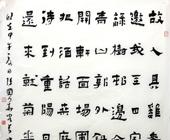 故人具雞黍
邀我至田家
綠樹邨邊合
青山郭外斜
開軒面場圃
把酒話桑麻
待到重陽日
還來就菊花